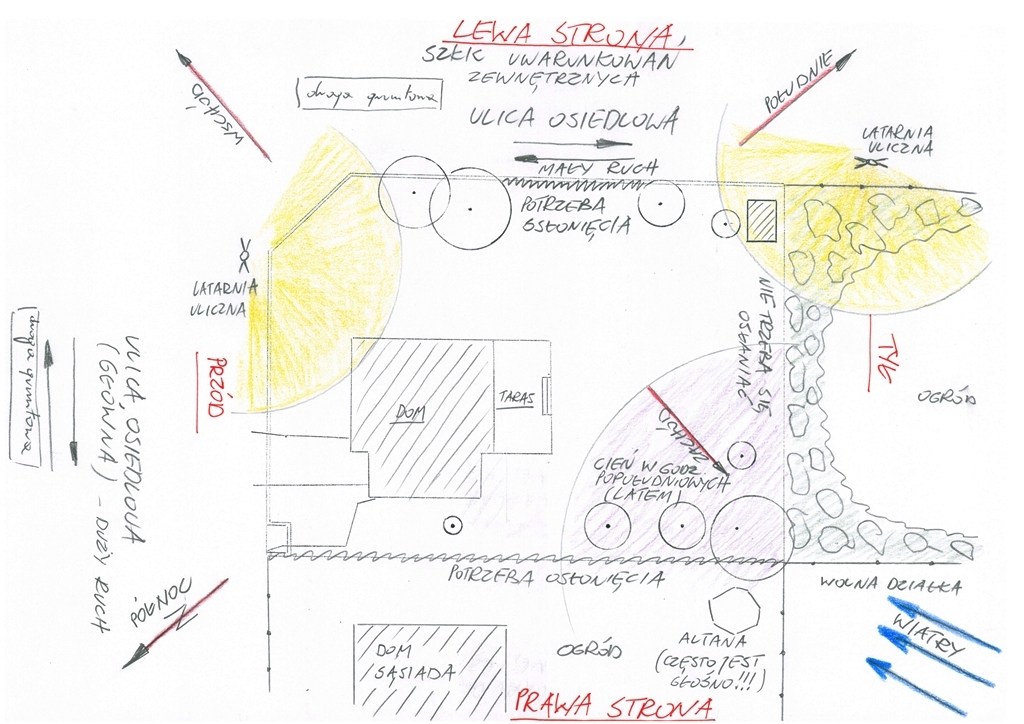 LEWA STRONA,
SZKIC UWARUNKOWAŃ
ZEWNĘTRZNYCH
droga gruntowa
ULICA OSIEDLOWA
MAŁY RUCH
WSCHÓD
POŁUDNIE
LATARNIA
ULICZNA
POTRZEBA
OSŁONIĘCIA
LATARNIA
ULICZNA
NIE TRZEBA SIĘ
OSŁANIAĆ
PRZÓD
TYŁ
droga gruntowa
ULICA OSIEDLOWA
(GŁÓWNA) - DUŻY RUCH
DOM
TARAS
OGRÓD
ZACHÓD
CIEŃ W GODZ.
POPOŁUDNIOWYCH
(LATEM)
POTRZEBA OSŁONIĘCIA
WOLNA DZIAŁKA
PÓŁNOC
N
WIATRY
DOM
SĄSIADA
OGRÓD
ALTANA
(CZĘSTO JEST
GŁOŚNO!!!)
PRAWA STRONA